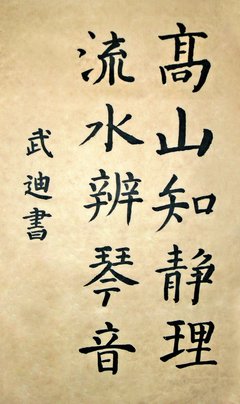 高山知静理
流水辨琴音
武迪書